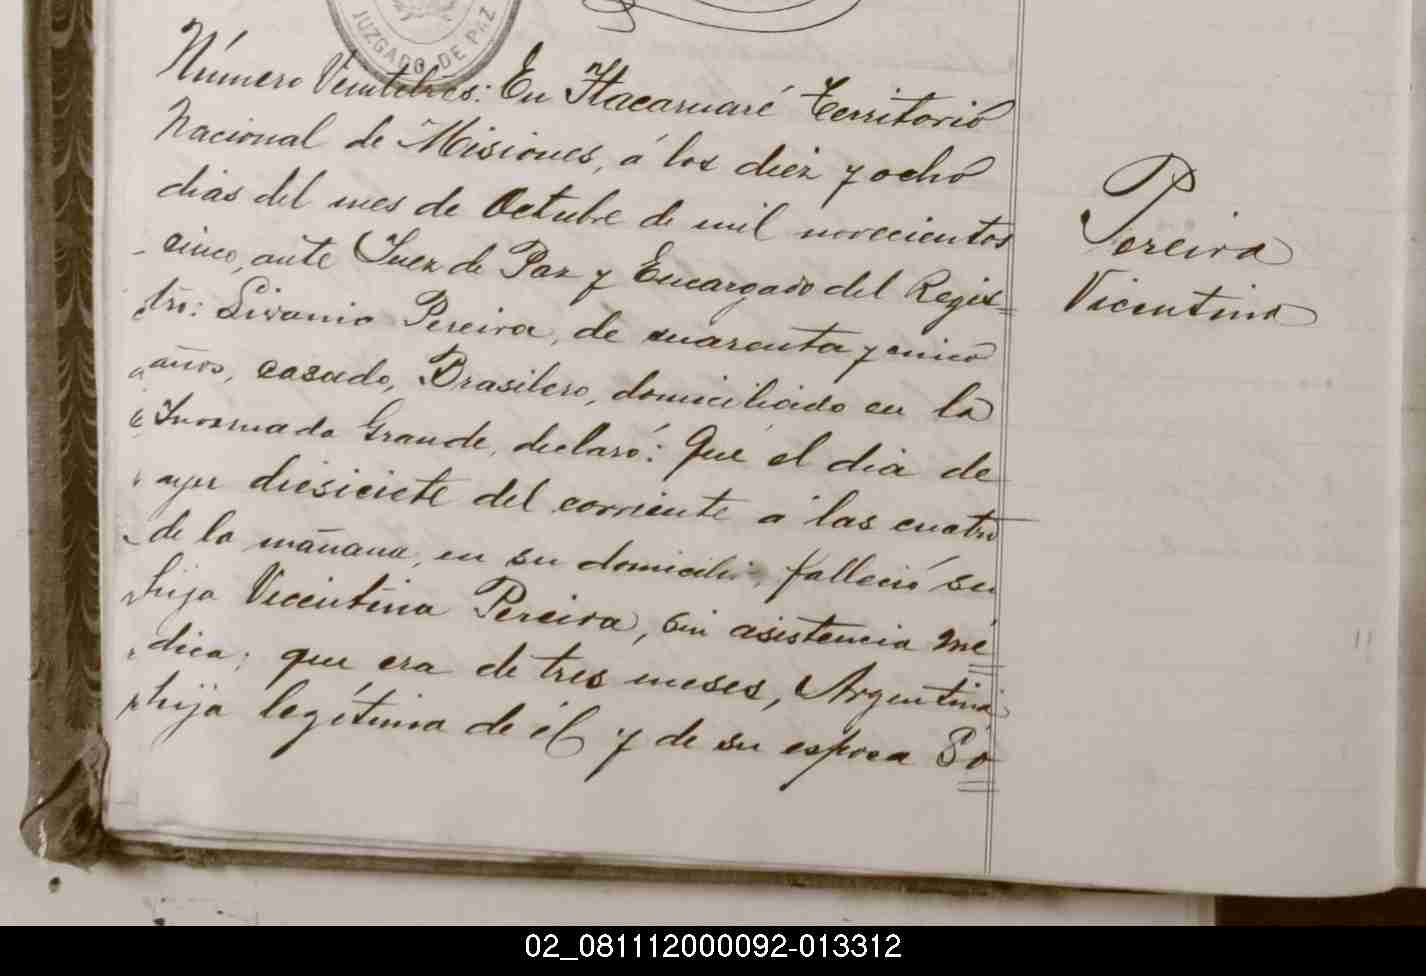 JUZGADO DE PAZ
Número Veintitres: En Itacaruaré Territorio
Nacional de Misiones, á los diez y ocho
dias del mes de Octubre de mil novecientos
cinco, ante Juez de Paz y Encargado del Regis=
tro: Livanio Pereira, de cuarenta y cinco
años, casado, Brasilero, domiciliado en la
Grande, declaró: Que el dia de
ayer diesiciete del corriente á las cuatro
de la mañana, en su domicilio, falleció su
hija Vicentina Pereira, sin asistencia mé
dica; que era de tres meses, Argentina
hija legítima de él y de su esposa
Pereira
Vicentina
02_081112000092-013312